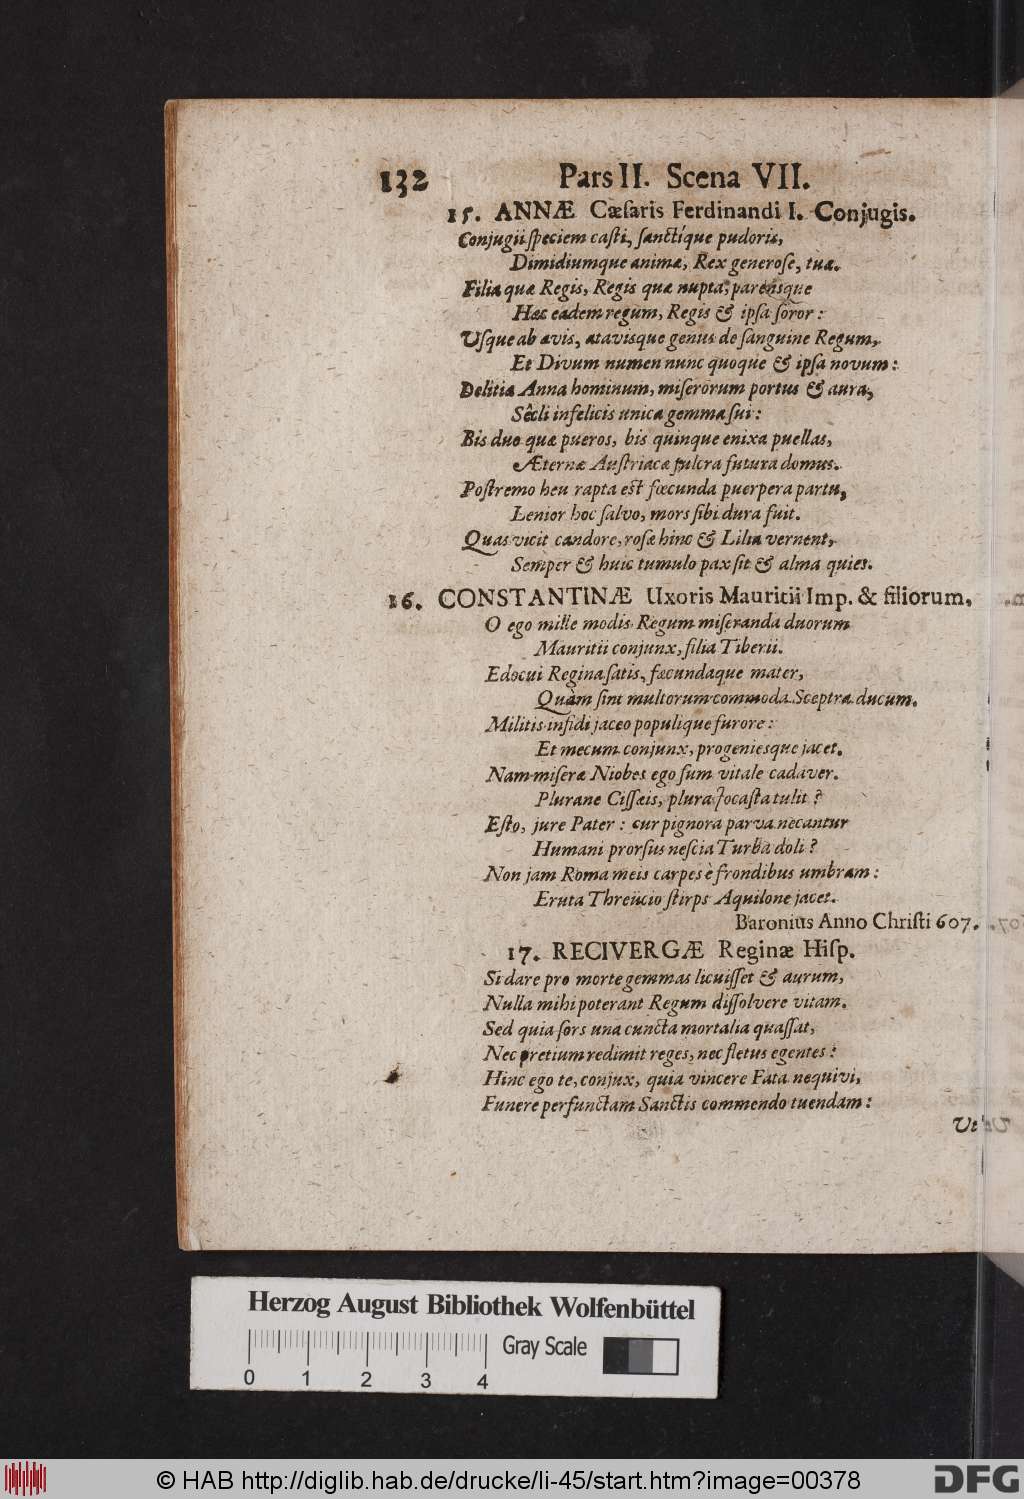 132 Pars II. Scena VII.
15. ANNÆ Cæſaris Ferdinandi I. Conjugis.
Conjugii ſpeciem caſti, ſanctíque pudoris,
Dimidiumque animæ, Rex generoſe, tuæ.
Filia quæ Regis, Regis quæ nupta, parensque
Hæc eadem regum, Regis & ipſa ſoror:
Uſque ab avis, atavisque genus de ſanguine Regum,
Et Divum numen nunc quoque & ipſa novum:
Delitiæ Anna hominum, miſerorum portus & aura,
Sêcli infelicis unica gemma ſui:
Bis duo quæ pueros, bis quinque enixa puellas,
Æternæ Auſtriacæ fulcra futura domus.
Poſtremo heu rapta eſt fœcunda puerpera partu,
Lenior hoc ſalvo, mors ſibi dura fuit.
Quas vicit candore, roſæ hinc & Lilia vernent,
Semper & huic tumulo pax ſit & alma quies.
16. CONSTANTINÆ Uxoris Mauritii Imp. & filiorum.
O ego mille modis Regum miſeranda duorum
Mauritii conjunx, filia Tiberii.
Edocui Regina ſatis, fœcundaque mater,
Quàm ſint multorum commoda Sceptra ducum.
Militis infidi jaceo populique furore:
Et mecum conjunx, progeniesque jacet.
Nam miſeræ Niobes ego ſum vitale cadaver.
Plurane Ciſſæis, plura Jocaſta tulit?
Eſto, jure Pater: cur pignora parva necantur
Humani prorſus neſcia Turba doli?
Non jam Roma meis carpes è frondibus umbram:
Eruta Threiicio ſtirps Aquilone jacet.
Baronius Anno Chriſti 607.
17. RECIVERGÆ Reginæ Hiſp.
Si dare pro morte gemmas licuiſſet & aurum,
Nulla mihi poterant Regum diſſolvere vitam.
Sed quia ſors una cuncta mortalia quaſſat,
Nec pretium redimit reges, nec fletus egentes:
Hinc ego te, conjux, quia vincere Fata nequivi,
Funere perfunctam Sanctis commendo tuendam:
Ut
Herzog August Bibliothek Wolfenbüttel
Gray Scale
0 1 2 3 4
© HAB http://diglib.hab.de/drucke/li-45/start.htm?image=00378
DFG